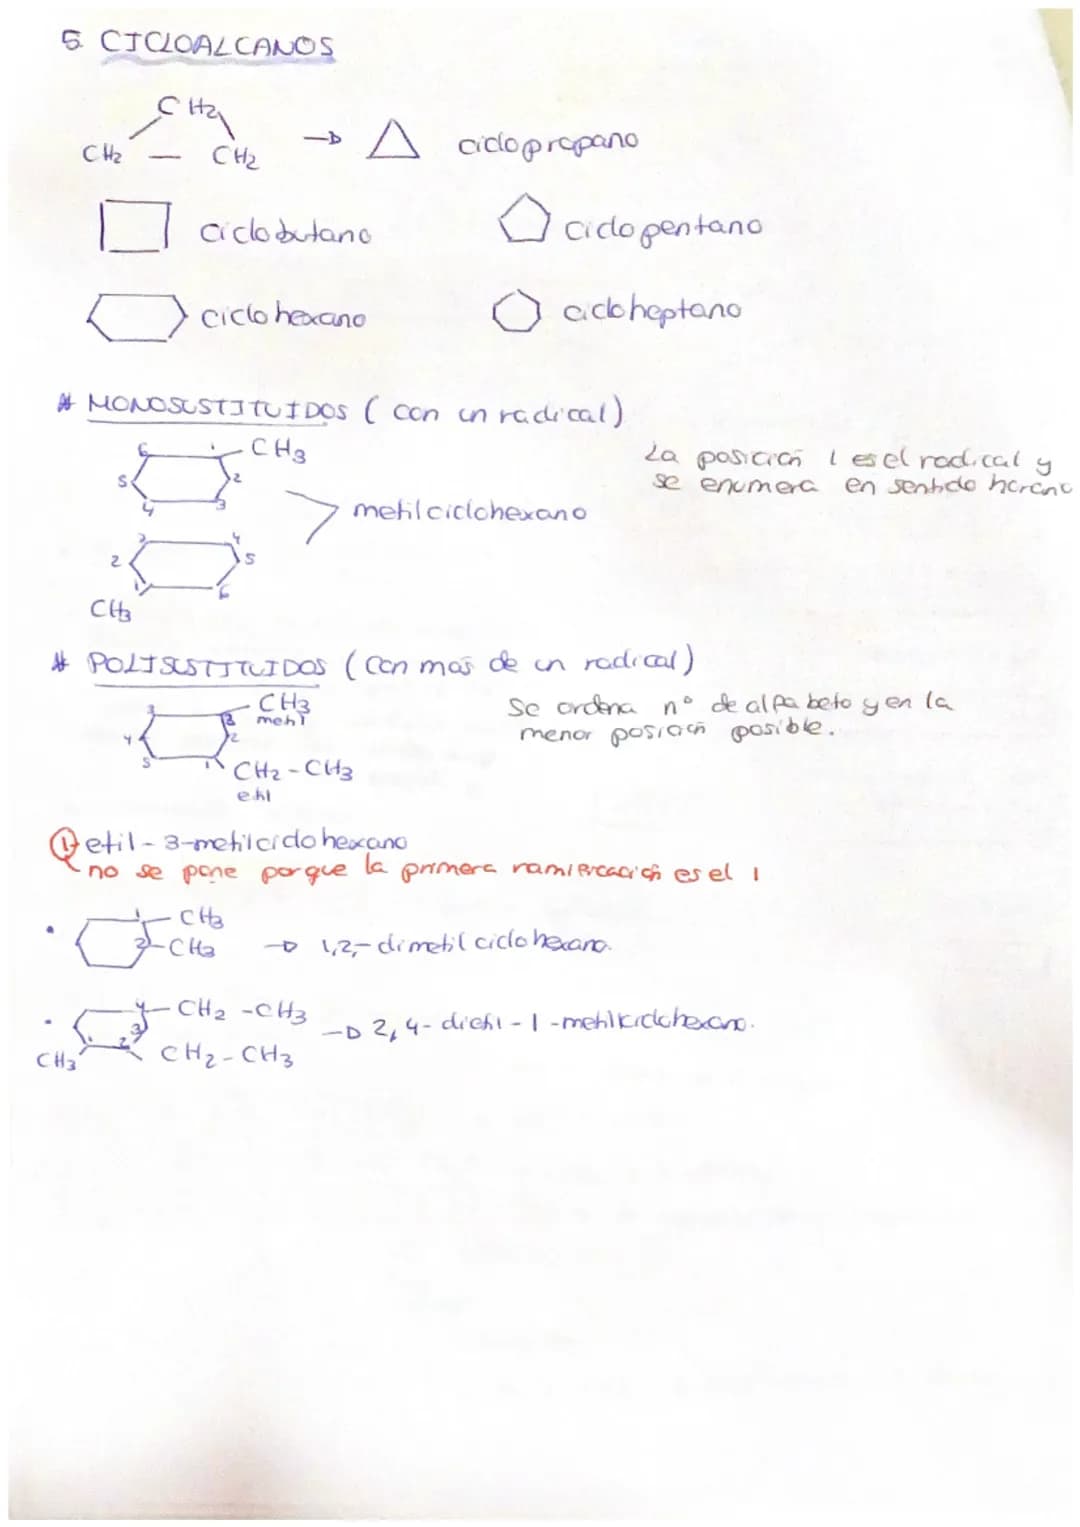 5. CICLOALCANOS
CH2
CH2 — CH2 → ciclopropano
ciclobutano
ciclopentano
ciclohexano
cicloheptano
* MONOSUSTITUIDOS ( con un radical)
6 1 CH3
5 2
4 3
La posición 1 es el radical y
se enumera en sentido horario
metilciclohexano
3 4
2 5
1 6
CH3
* POLISUSTITUIDOS ( con mas de un radical)
3 CH3
metil
4 2
5 1 CH2-CH3
etil
Se ordena nº de alfabeto y en la
menor posición posible.
1-etil-3-metilciclohexano
no se pone porque la primera ramificación es el 1
1 - CH3
2 - CH3 → 1,2,- dimetil ciclohexano.
4 - CH2 -CH3
3
1 2 CH2-CH3
CH3
→ 2,4- dietil -1-metilciclohexano.